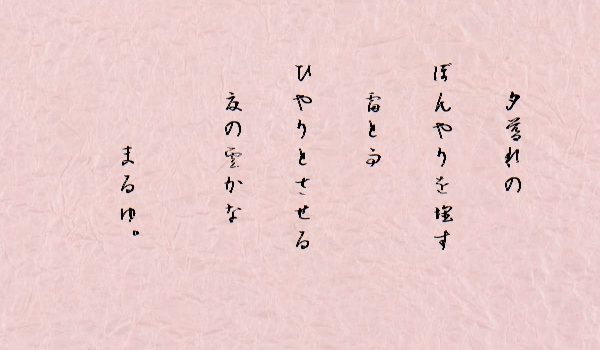 夕暮れの
ぼんやりを壊す
雷と雨
ひやりとさせる
夜の雲かな
まるゆ。